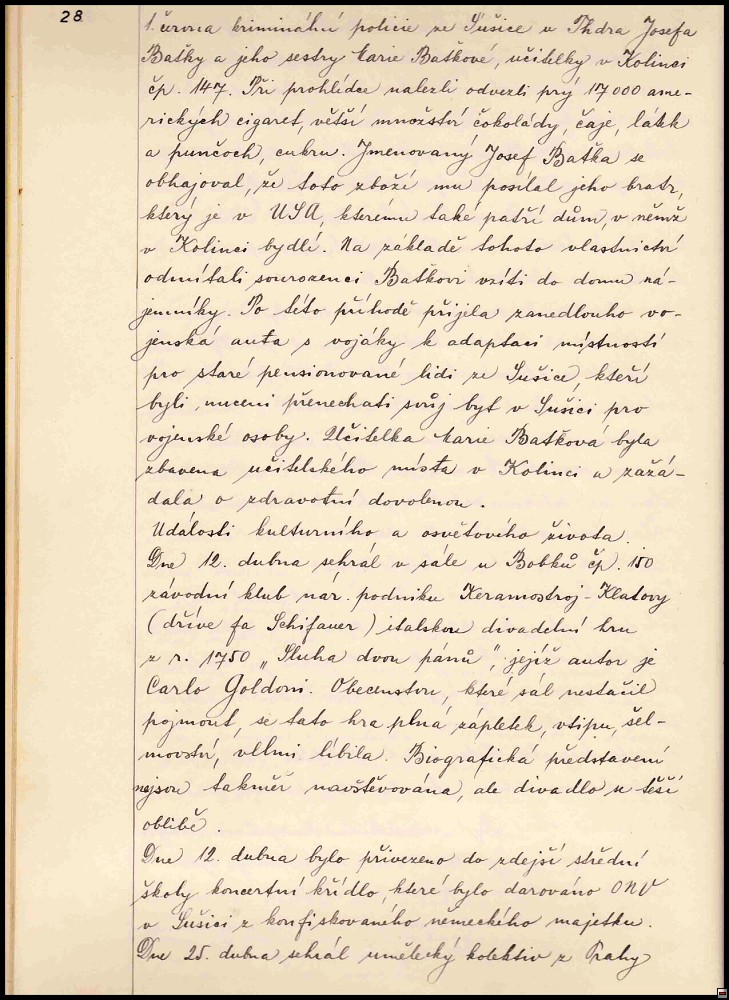 28
1. června kriminální policie ze Sušice u Thdra Josefa
Baťky a jeho sestry Marie Baťkové, učitelky v Kolinci
čp. 147. Při prohlídce nalezli odvezli prý 17 000 ame-
rických cigaret, větší množství čokolády, čaje, látek
a punčoch, cukru. Jmenovaný Josef Baťka se
obhajoval, že toto zboží mu posílal jeho bratr,
který je v USA, kterému také patří dům, v němž
v Kolinci bydlí. Na základě tohoto vlastnictví
odmítali sourozenci Baťkovi vzíti do domu ná-
jemníky. Po této příhodě přijela zanedlouho vo-
jenská auta s vojáky k adaptaci místností
pro staré pensionované lidi ze Sušice, kteří
byli nuceni přenechati svůj byt v Sušici pro
vojenské osoby. Učitelka Marie Baťková byla
zbavena učitelského místa v Kolinci a zažá-
dala o zdravotní dovolenou.
Události kulturního a osvětového života.
Dne 12. dubna sehrál v sále u Bobků čp. 150
závodní klub nár. podniku Keramostroj - Klatovy
(dříve fa Schifauer) italskou divadelní hru
z r. 1750 „Sluha dvou pánů", jejíž autor je
Carlo Goldoni. Obecenstvu, které sál nestačil
pojmout, se tato hra plná zápletek, vtipu, šel-
movství, velmi líbila. Biografická představení
nejsou takměř navštěvována, ale divadlo se těší
oblibě.
Dne 12. dubna bylo přivezeno do zdejší střední
školy koncertní křídlo, které bylo darováno ONV
v Sušici z konfiskovaného německého majetku.
Dne 25. dubna sehrál umělecký kolektiv z Prahy